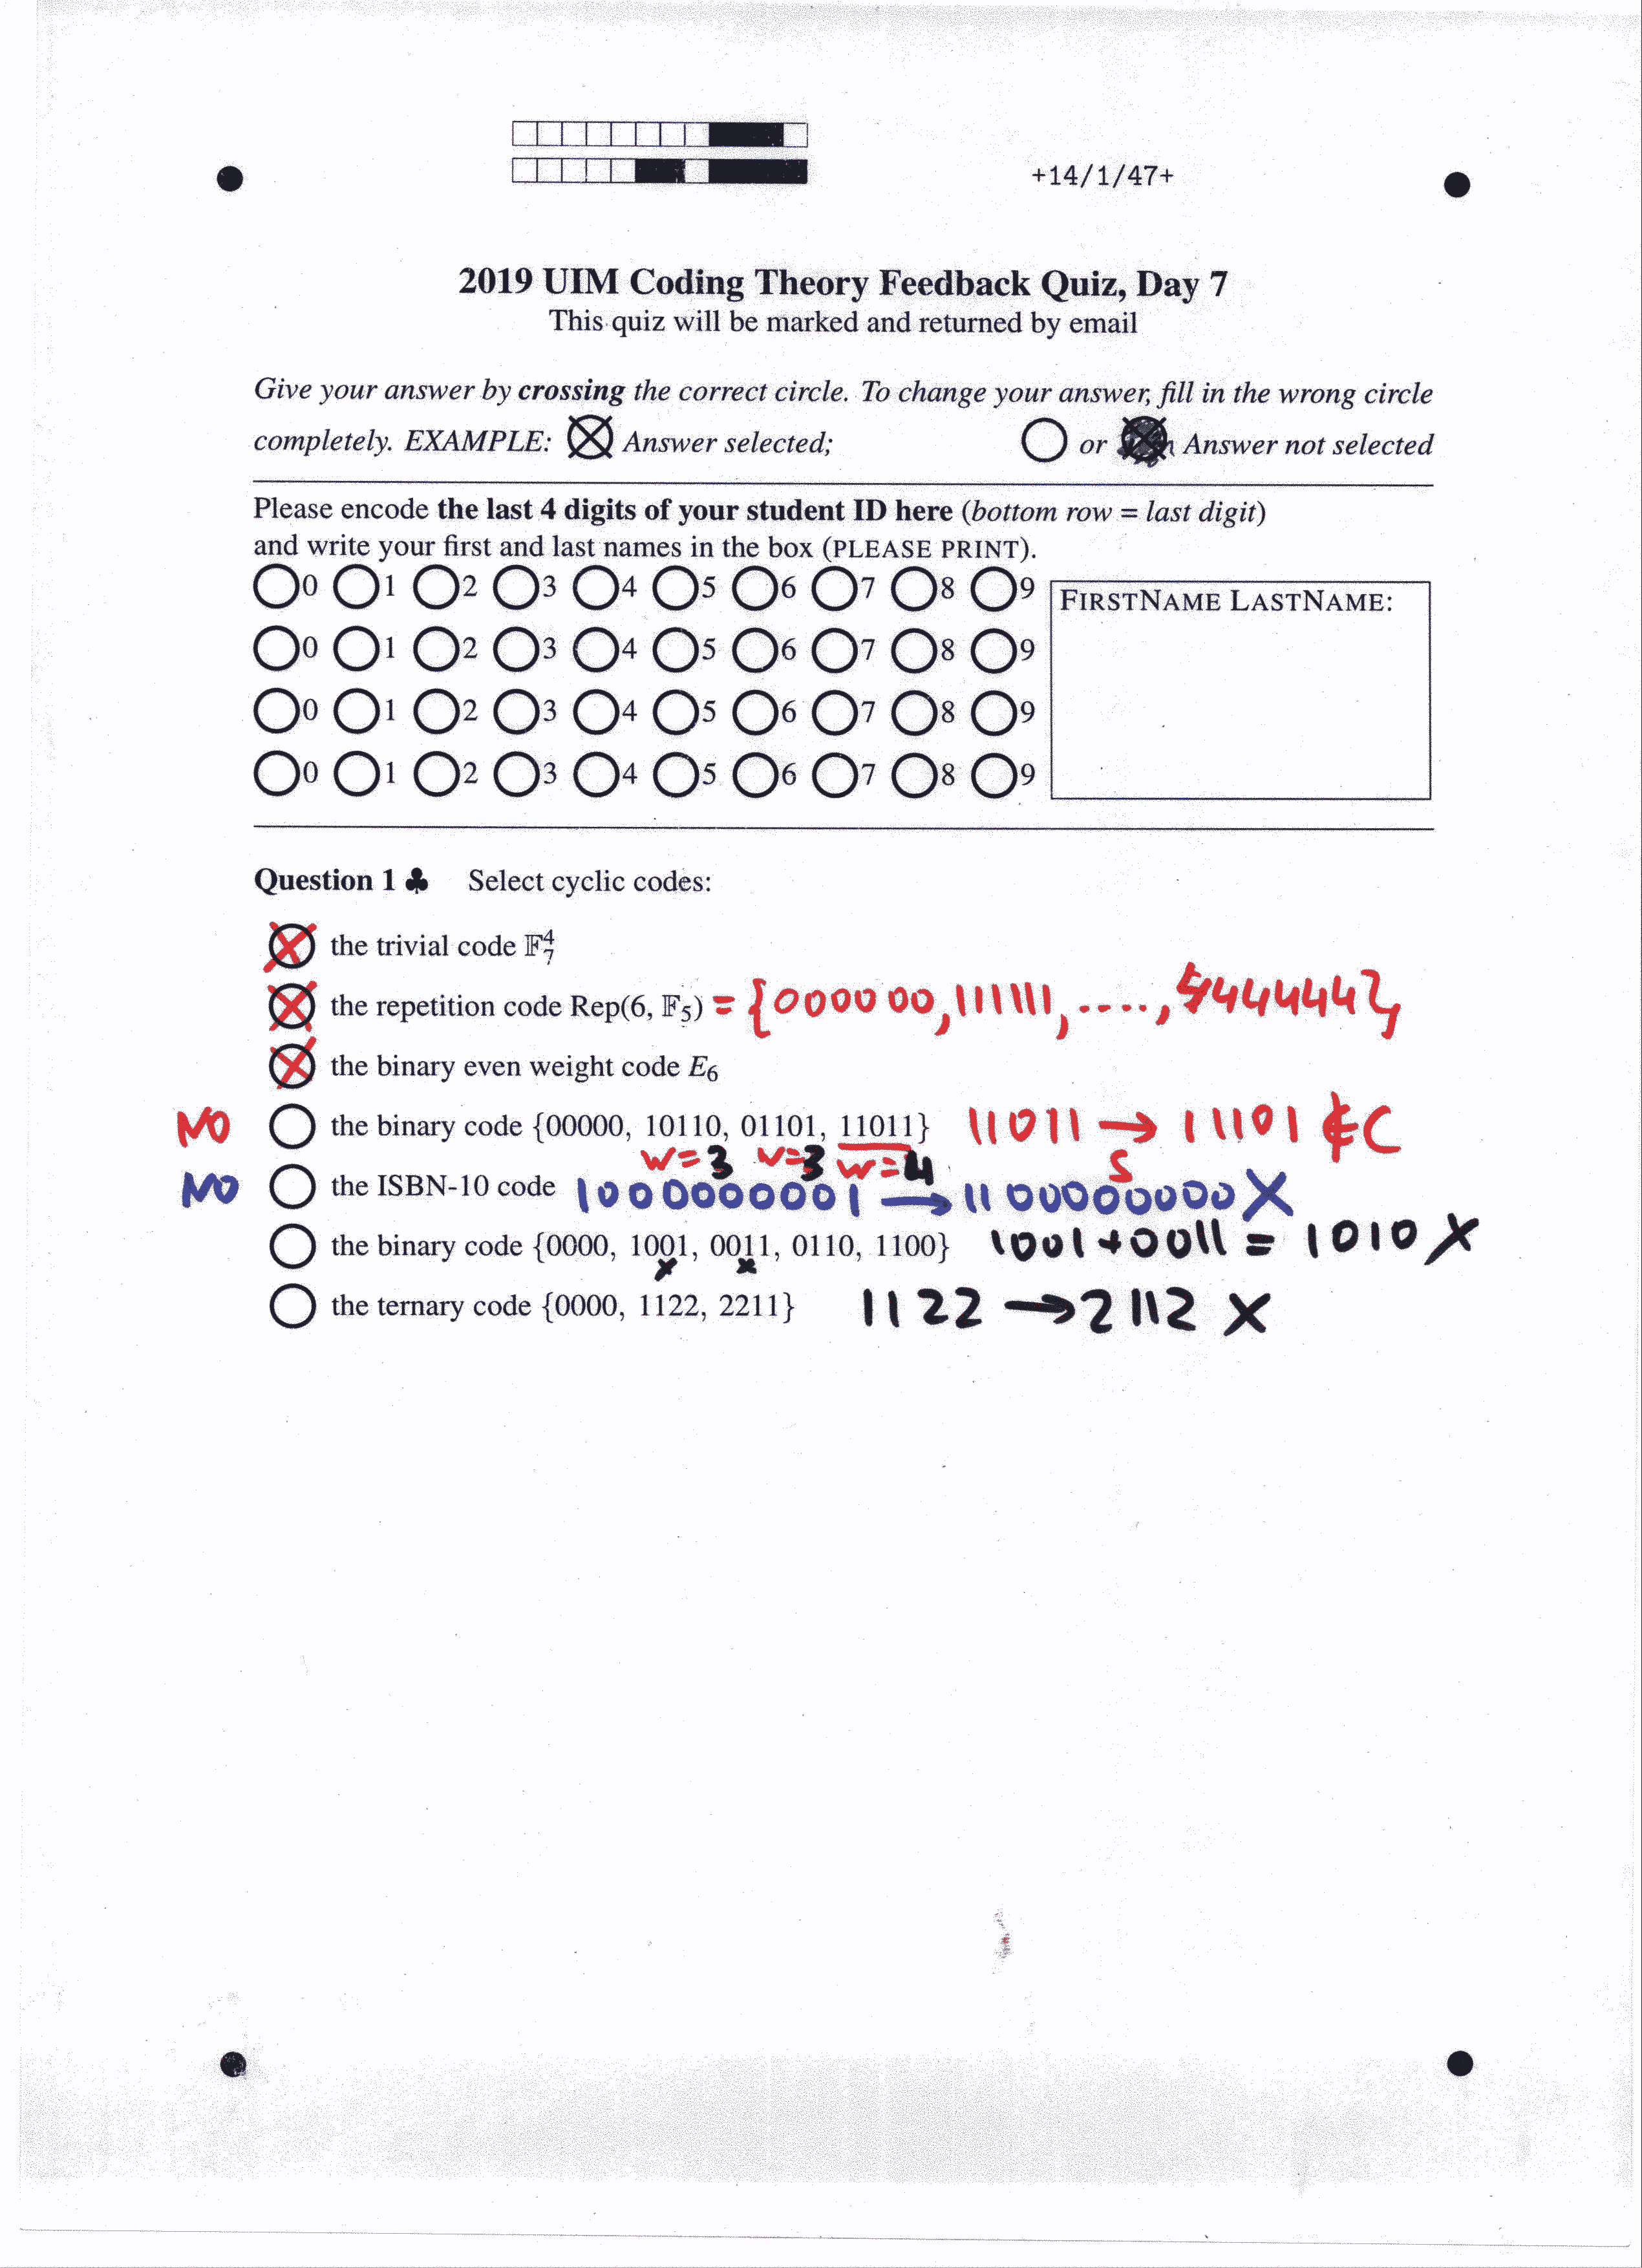 +14/1/47+
2019 UIM Coding Theory Feedback Quiz, Day 7
This quiz will be marked and returned by email
Give your answer by crossing the correct circle. To change your answer, fill in the wrong circle
completely. EXAMPLE: Answer selected; or Answer not selected
Please encode the last 4 digits of your student ID here (bottom row = last digit)
and write your first and last names in the box (PLEASE PRINT).
0 1 2 3 4 5 6 7 8 9
FIRSTNAME LASTNAME:
0 1 2 3 4 5 6 7 8 9
0 1 2 3 4 5 6 7 8 9
0 1 2 3 4 5 6 7 8 9
Question 1 ♣ Select cyclic codes:
the trivial code 𝔽₇⁴
the repetition code Rep(6, 𝔽₅) = {000000, 111111, ...., 444444},
the binary even weight code E₆
NO the binary code {00000, 10110, 01101, 11011} 11011 → 11101 ∉ C
w=3 w=3 w=4 S
NO the ISBN-10 code 1000000001 → 1100000000 X
the binary code {0000, 1001, 0011, 0110, 1100} 1001+0011 = 1010 X
x x
the ternary code {0000, 1122, 2211} 1122 → 2112 X